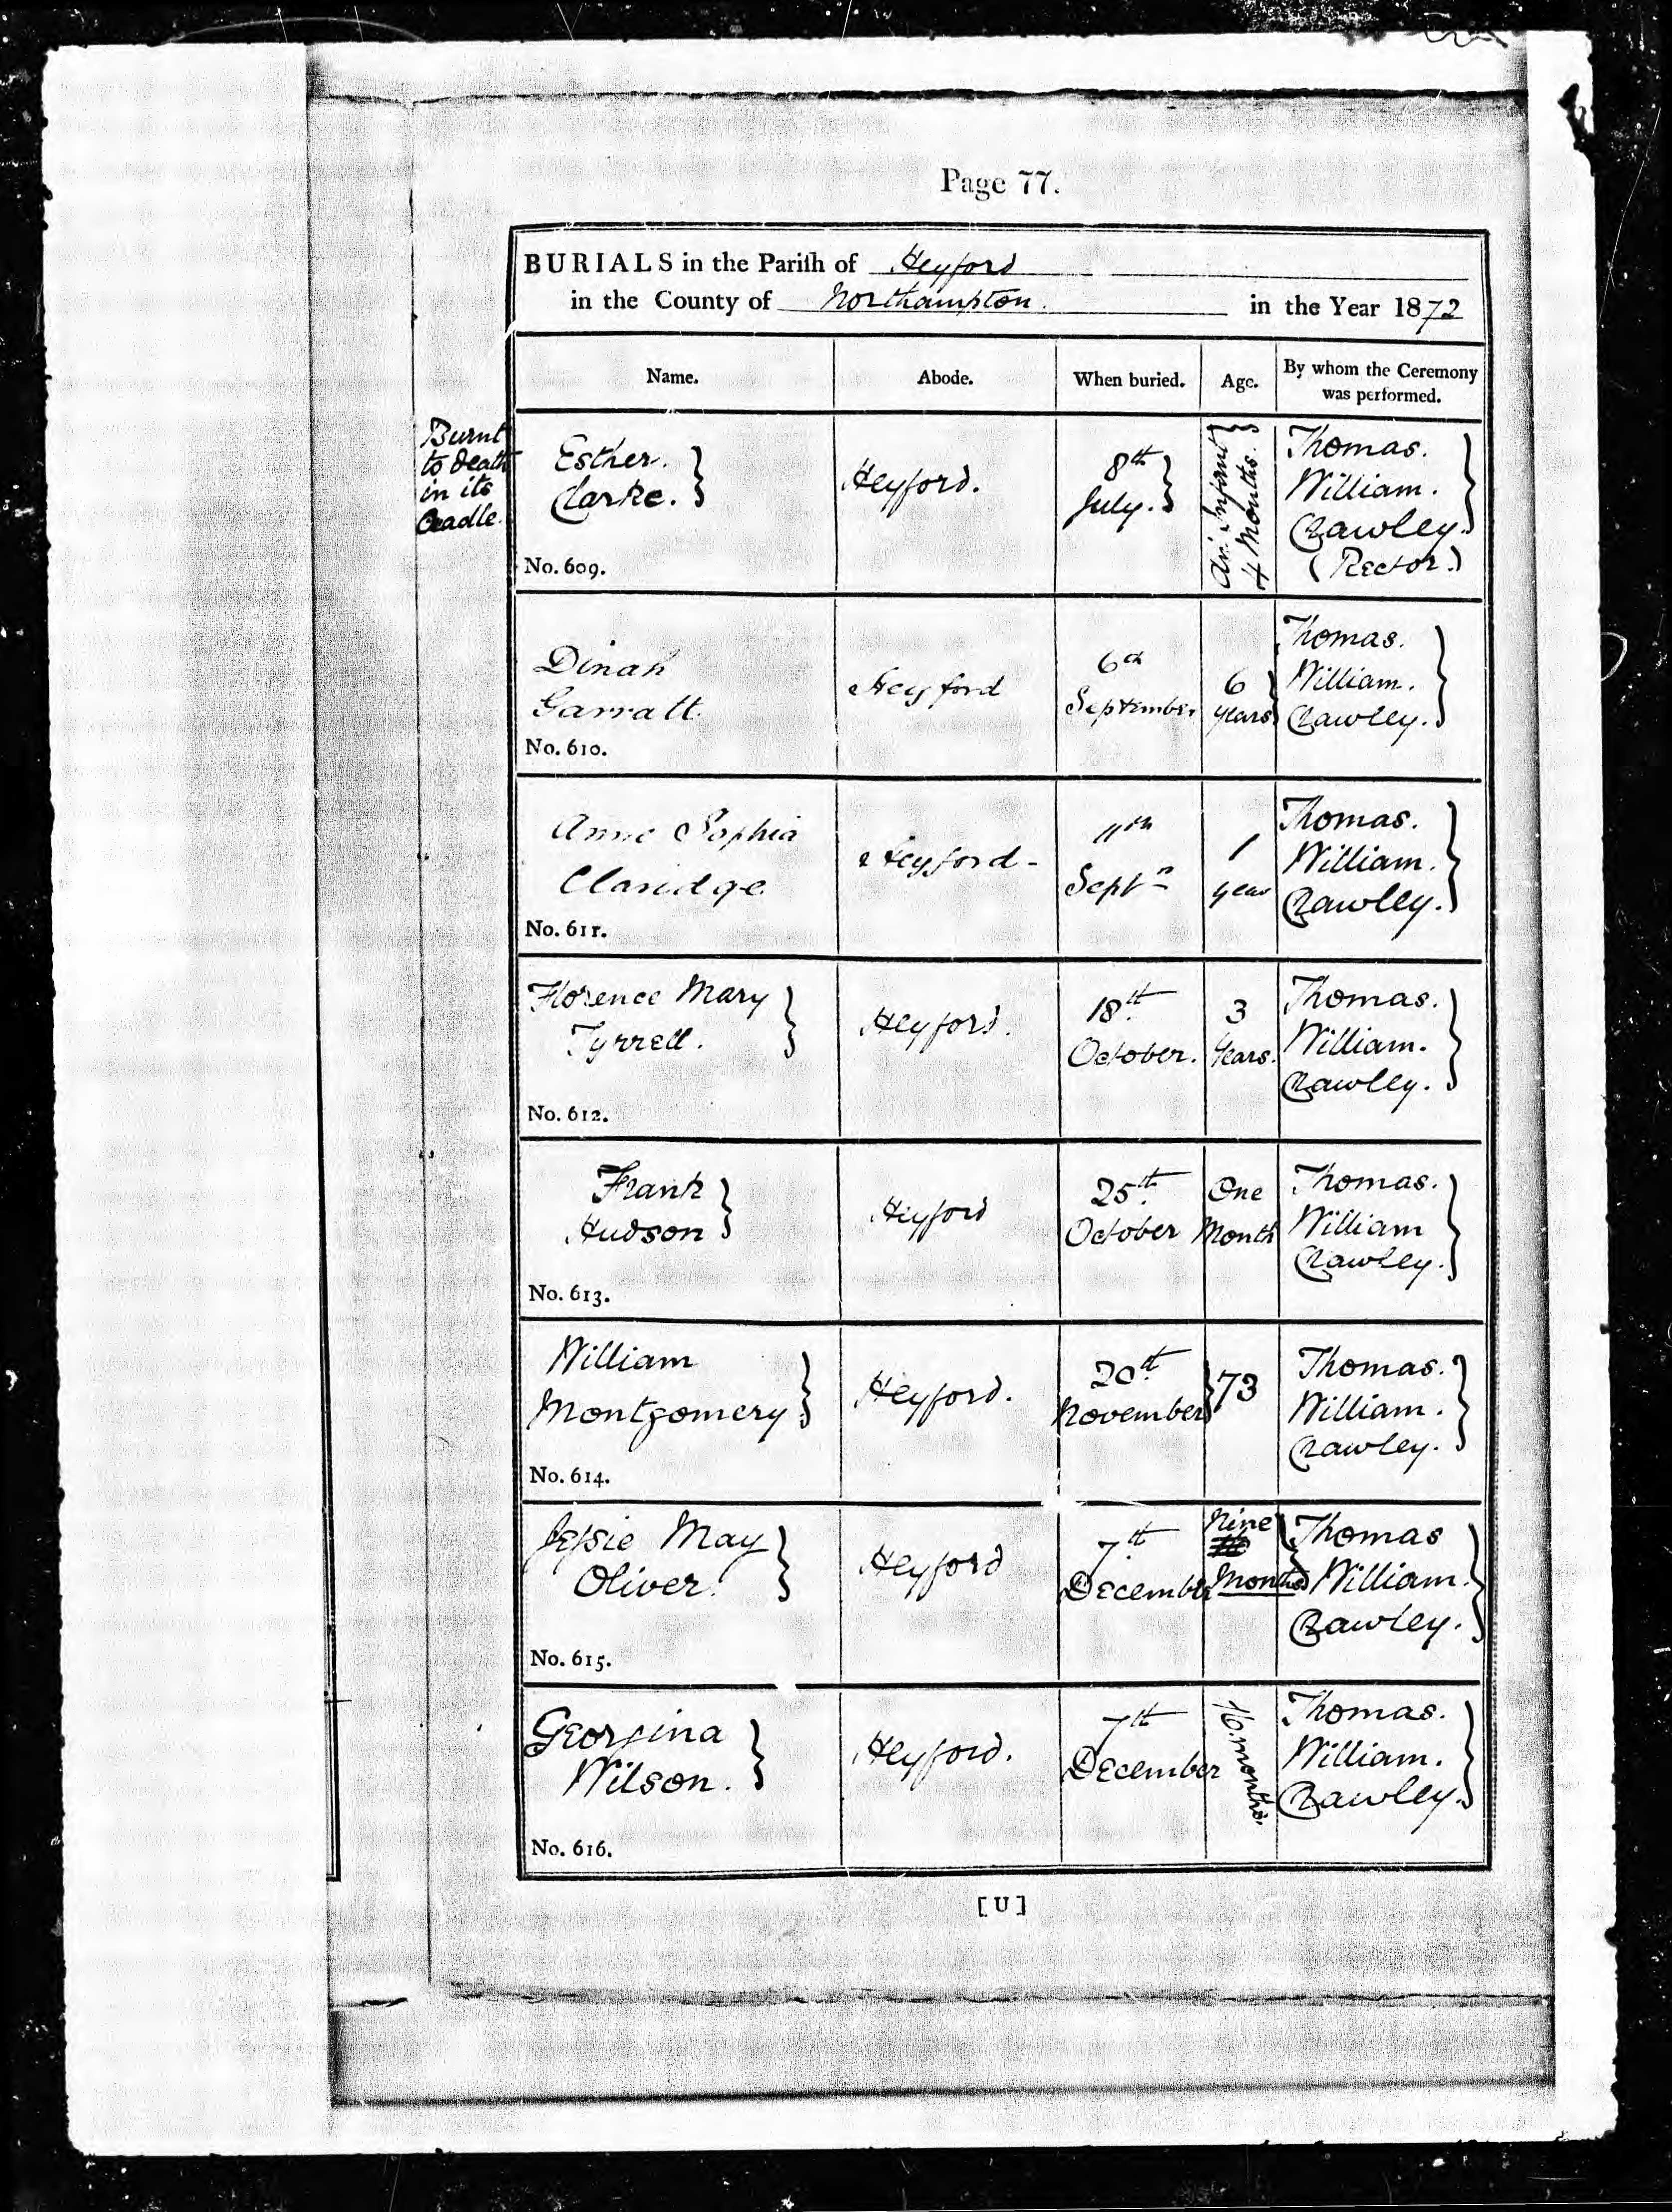 Page 77.
BURIALS in the Parish of Heyford
in the County of Northampton. in the Year 1872
Name. Abode. When buried. Age. By whom the Ceremony was performed.
Burnt
to death
in its
Cradle.
Esther.
Clarke.
No. 609.
Heyford.
8th
July.
An Infant
4 Months.
Thomas.
William.
Crawley.
(Rector.)
Dinah
Garratt.
No. 610.
Heyford
6th
September
6
years
Thomas.
William.
Crawley.
Anne Sophia
Claridge.
No. 611.
Heyford-
11th
Septr
1
year
Thomas.
William.
Crawley.
Florence Mary
Tyrrell.
No. 612.
Heyford.
18th
October.
3
Years.
Thomas.
William.
Crawley.
Frank
Hudson
No. 613.
Heyford
25th
October
One
Month
Thomas.
William
Crawley.
William
Montgomery
No. 614.
Heyford.
20th
November
73
Thomas.
William.
Crawley.
Jessie May
Oliver.
No. 615.
Heyford
7th
December
Nine
Months
Thomas
William.
Crawley.
Georgina
Wilson.
No. 616.
Heyford.
7th
December
16 months.
Thomas.
William.
Crawley.
[U]